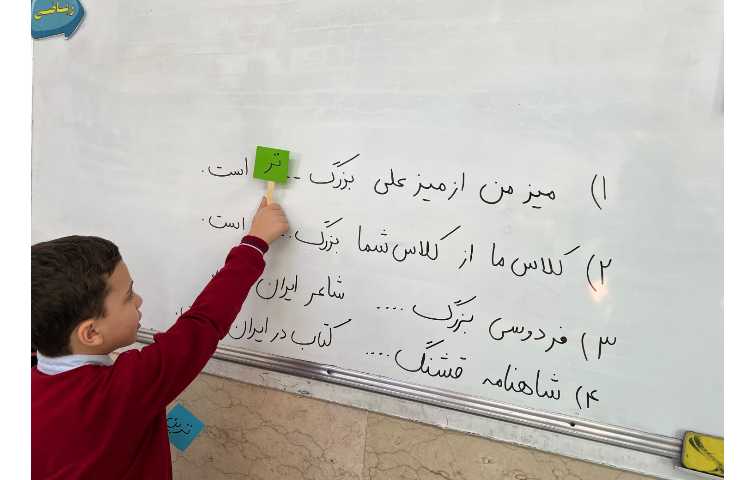 ریاضی
۱) میز من از میز علی بزرگ .. تر است.
۲) کلاس ما از کلاس شما بزرگ ... است.
۳) فردوسی بزرگ .... شاعر ایران
۴) شاهنامه قشنگ .... کتاب در ایران